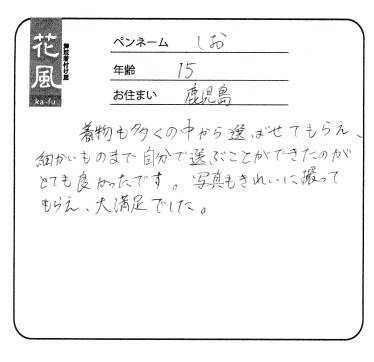 花風
御仕着付け屋
ka-fu
ペンネーム しお
年齢 15
お住まい 鹿児島
着物も多くの中から選ばせてもらえ、
細かいものまで自分で選ぶことができたのが
とても良かったです。写真もきれいに撮って
もらえ、大満足でした。